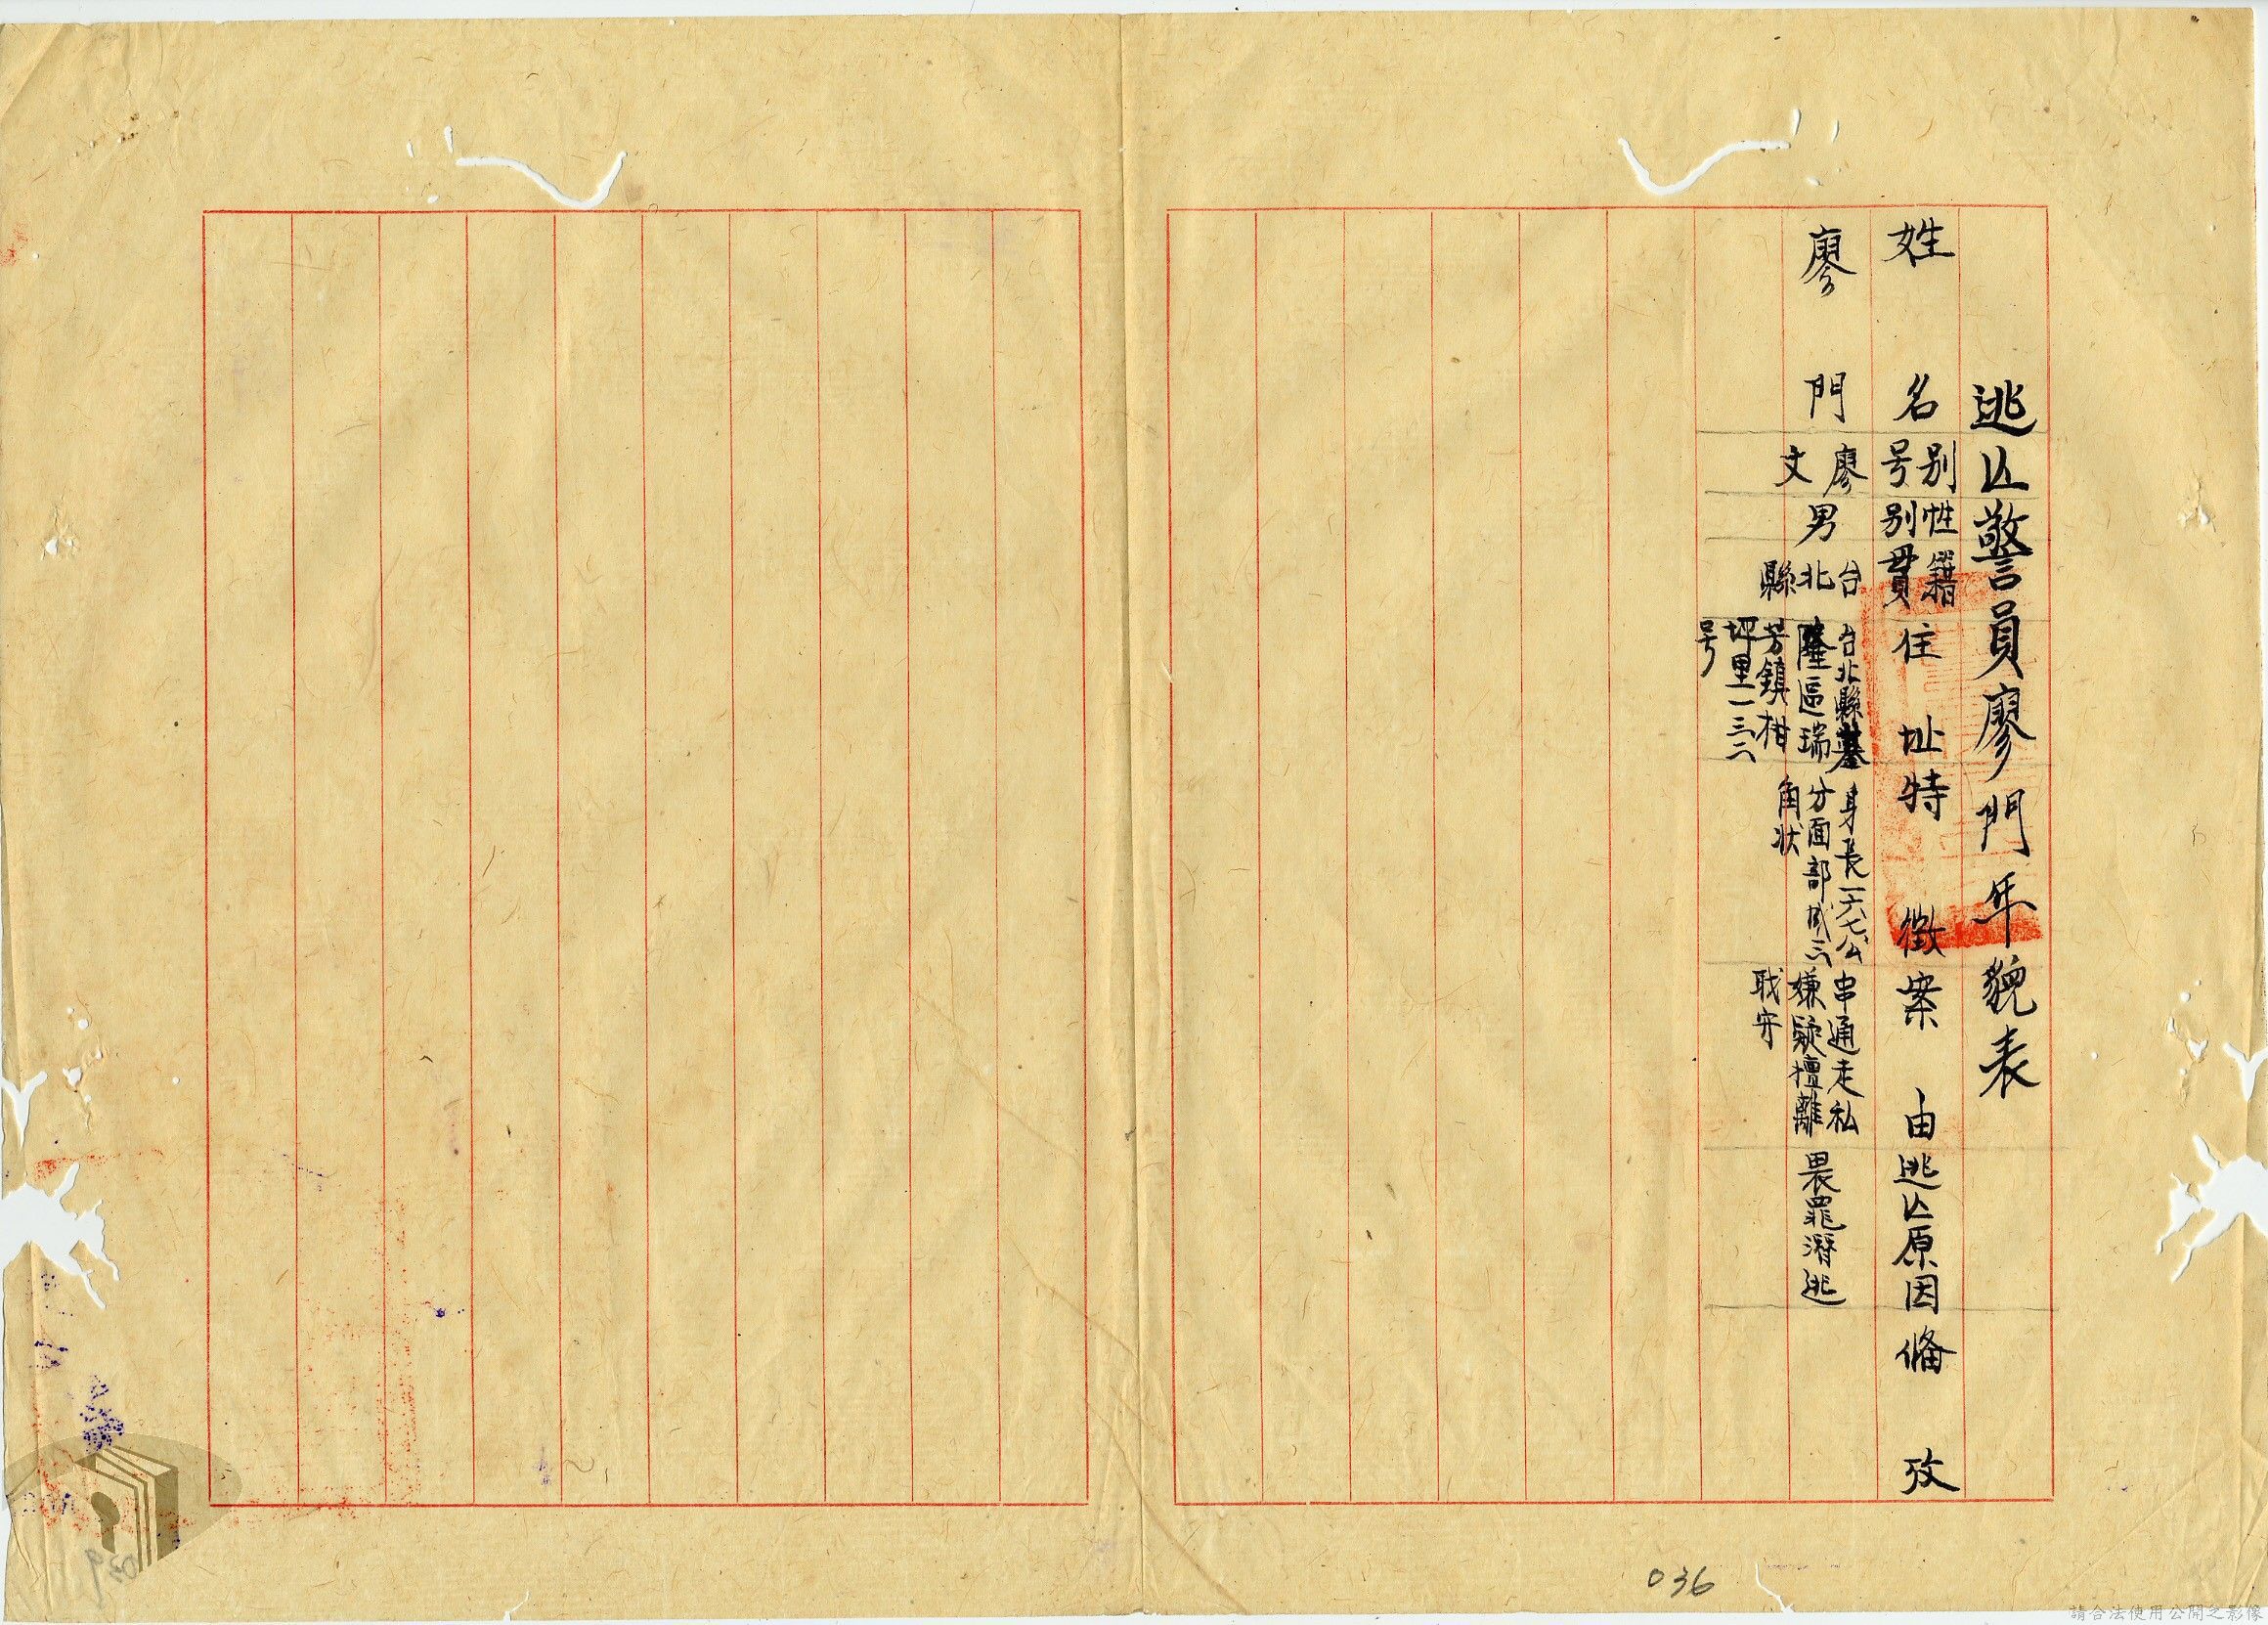 逃亾警員廖門年貌表
姓名
別号
性別
籍貫
住址
特徵
案由
逃亾原因
偹攷
廖門
廖文
男
台北縣
台北縣基
隆區瑞
芳鎮柑
坪里一三二
号
身長一六七公
分面部成三
角状
串通走私
嫌疑擅離
聀守
畏罪潛逃
036
039
請合法使用公開之影像